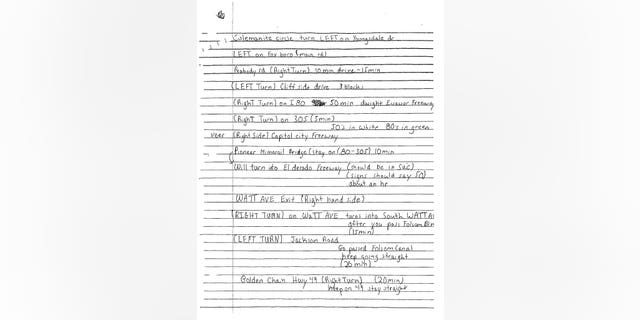 Colemanite circle turn LEFT on Youngsdale dr
LEFT on Foxboro (main rd)
Peabody rd (Right Turn) 10 min drive - 15 min
(LEFT Turn) Cliffside drive 3 blocks
(Right Turn) on I 80 50 min dwight Eisenower Freeway
(Right Turn) on 305 (5 min)
50's in white 80's in green
veer (Right Side) Capitol city Freeway
Pioneer Mimorail Bridge (stay on (80-305) 10 min
Will turn ito El dorado Freeway (should be in Sac)
(signs should say 50)
about an hr
WATT AVE Exit (Right hand side)
(RIGHT TURN) on WATT AVE turns into South WATT
after you pass Folsom
(15 min)
(LEFT TURN) Jackson Road
Go passed Folsom
keep going straight
(20 min)
Golden Chan Hwy 49 (Right Turn) (20 min)
keep on 49 stay straight